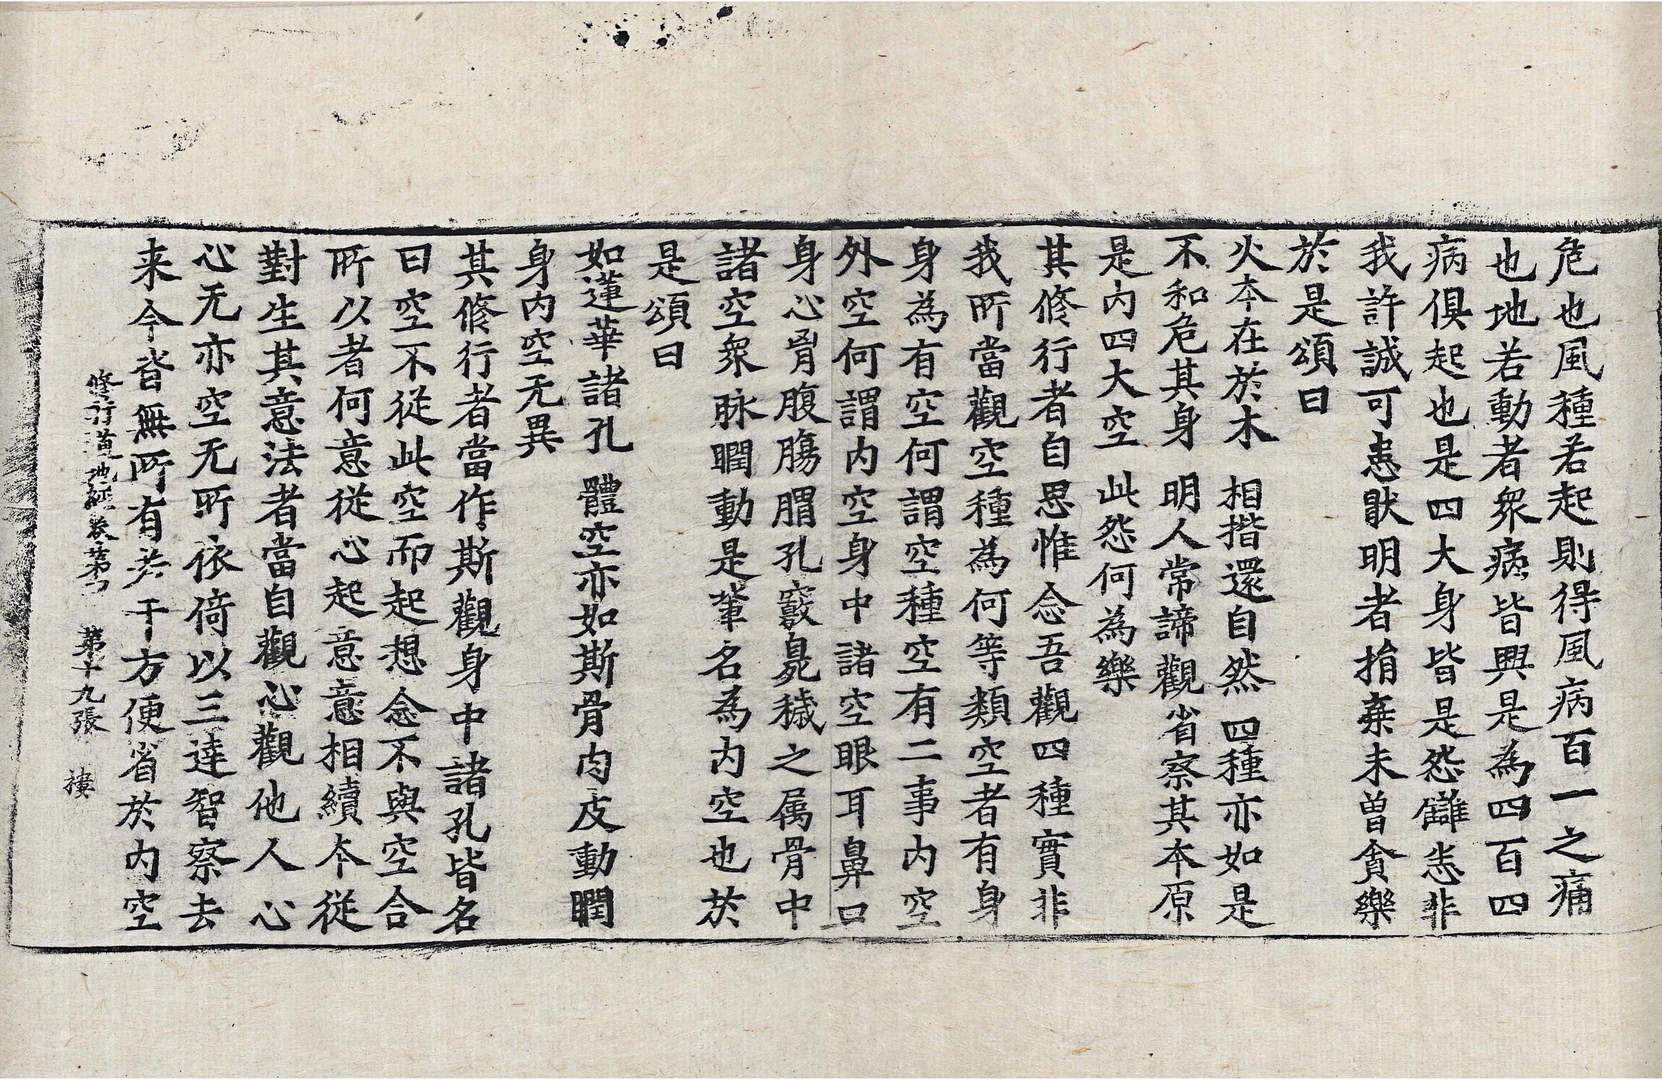 危也風種若起則得風病百一之痛
也地若動者衆病皆興是為四百四
病俱起也是四大身皆是怨讎悉非
我許誠可患猒明者捐棄未曽貪樂
於是頌曰
火夲在於木　相揩還自然　四種亦如是
不和危其身　明人常諦觀　省察其夲原
是內四大空　此怨何為樂
其修行者自思惟念吾觀四種實非
我所當觀空種為何等類空者有身
身為有空何謂空種空有二事內空
外空何謂內空身中諸空眼耳鼻口
身心胷腹腸胃孔竅臰穢之属骨中
諸空衆脉瞤動是輩名為內空也於
是頌曰
如蓮華諸孔　體空亦如斯骨肉皮動瞤
身內空无異
其修行者當作斯觀身中諸孔皆名
曰空不從此空而起想念不與空合
所以者何意從心起意意相續夲從
對生其意法者當自觀心觀他人心
心无亦空无所依倚以三達智察去
来今皆無所有若干方便省於內空
修行道地經卷第 　第十九張　棲